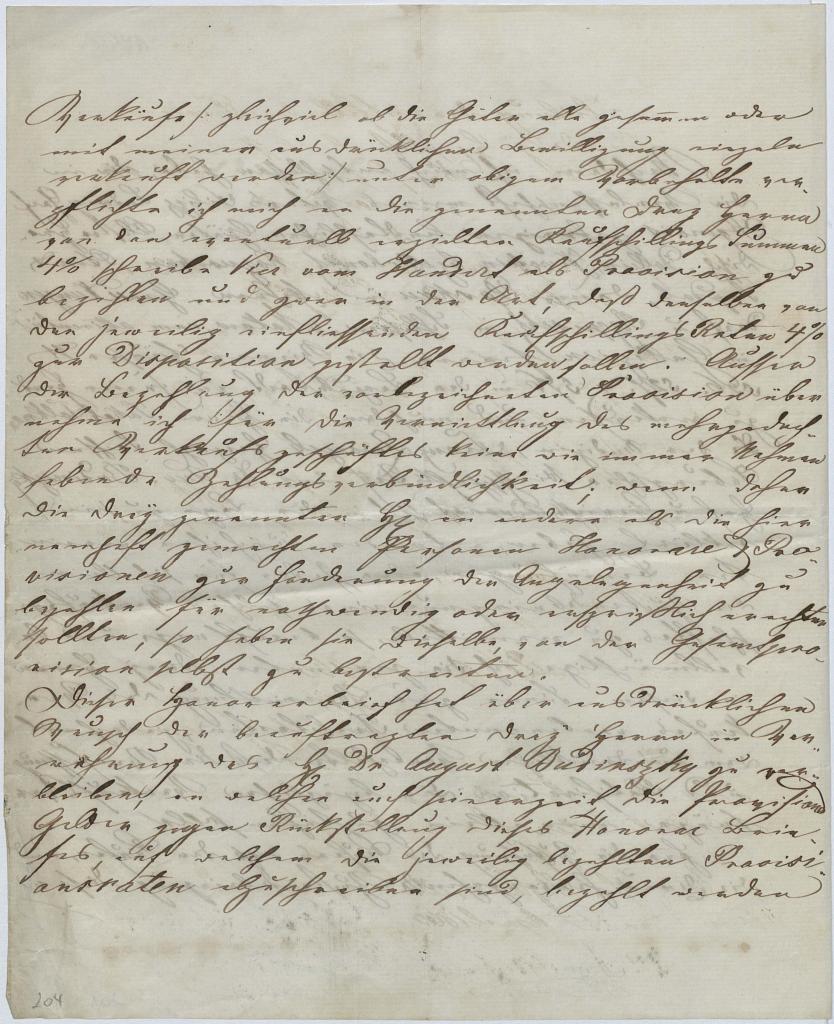 Verkäufe /: gleichviel ob die Güter alle zusammen oder
mit meiner ausdrücklichen Bewilligung einzeln
verkauft werden :/ unter obigem Vorbehalte ver-
pflichte ich mich an die genannten drey Herrn
von den eventuell erzielten Kaufschillings Summen
4% schreibe Vier vom Hundert als Provision zu
bezahlen und zwar in der Art, daß denselben von
den jeweilig einfliessenden Kaufschillings Raten 4%
zur Disposition gestellt werden sollen. Ausser
der Bezahlung der vorbezeichneten Provision über
nehme ich für die Vermittlung des mehrgedach
ten Verkaufsgeschäftes keine wie immer Nahmen
habende Zahlungsverbindlichkeit; wenn daher
die drey genannten H an andere als die hier
namhaft gemachten Personen Honorare & Pro-
visionen zur Förderung der Angelegenheit zu
bezahlen für nothwendig oder ersprießlich erachten
sollten, so haben sie dieselbe, von der Gesamtpro-
vision selbst zu bestreiten.
Dieser Honorarbrief hat über ausdrücklichen
Wunsch der beauftragten drey Herrn in Ver-
wahrung des H Dr August Budinszky zu ver-
bleiben, an welchen auch seinerzeit die Provisions
Gelder gegen Rückstellung dieses Honorar Brie-
fes, auf welchem die jeweilig bezahlten Provisi-
onsraten abzuschreiben sind, bezahlt werden
204